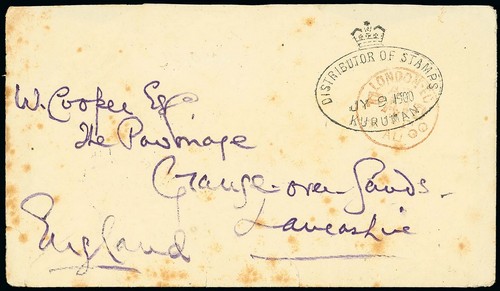 DISTRIBUTOR OF STAMPS
JY 9 1900
KURUMAN
LONDON
AU 00
W. Cooper Esq
The Parsonage
Grange-over-Sands.
Lancashire
England